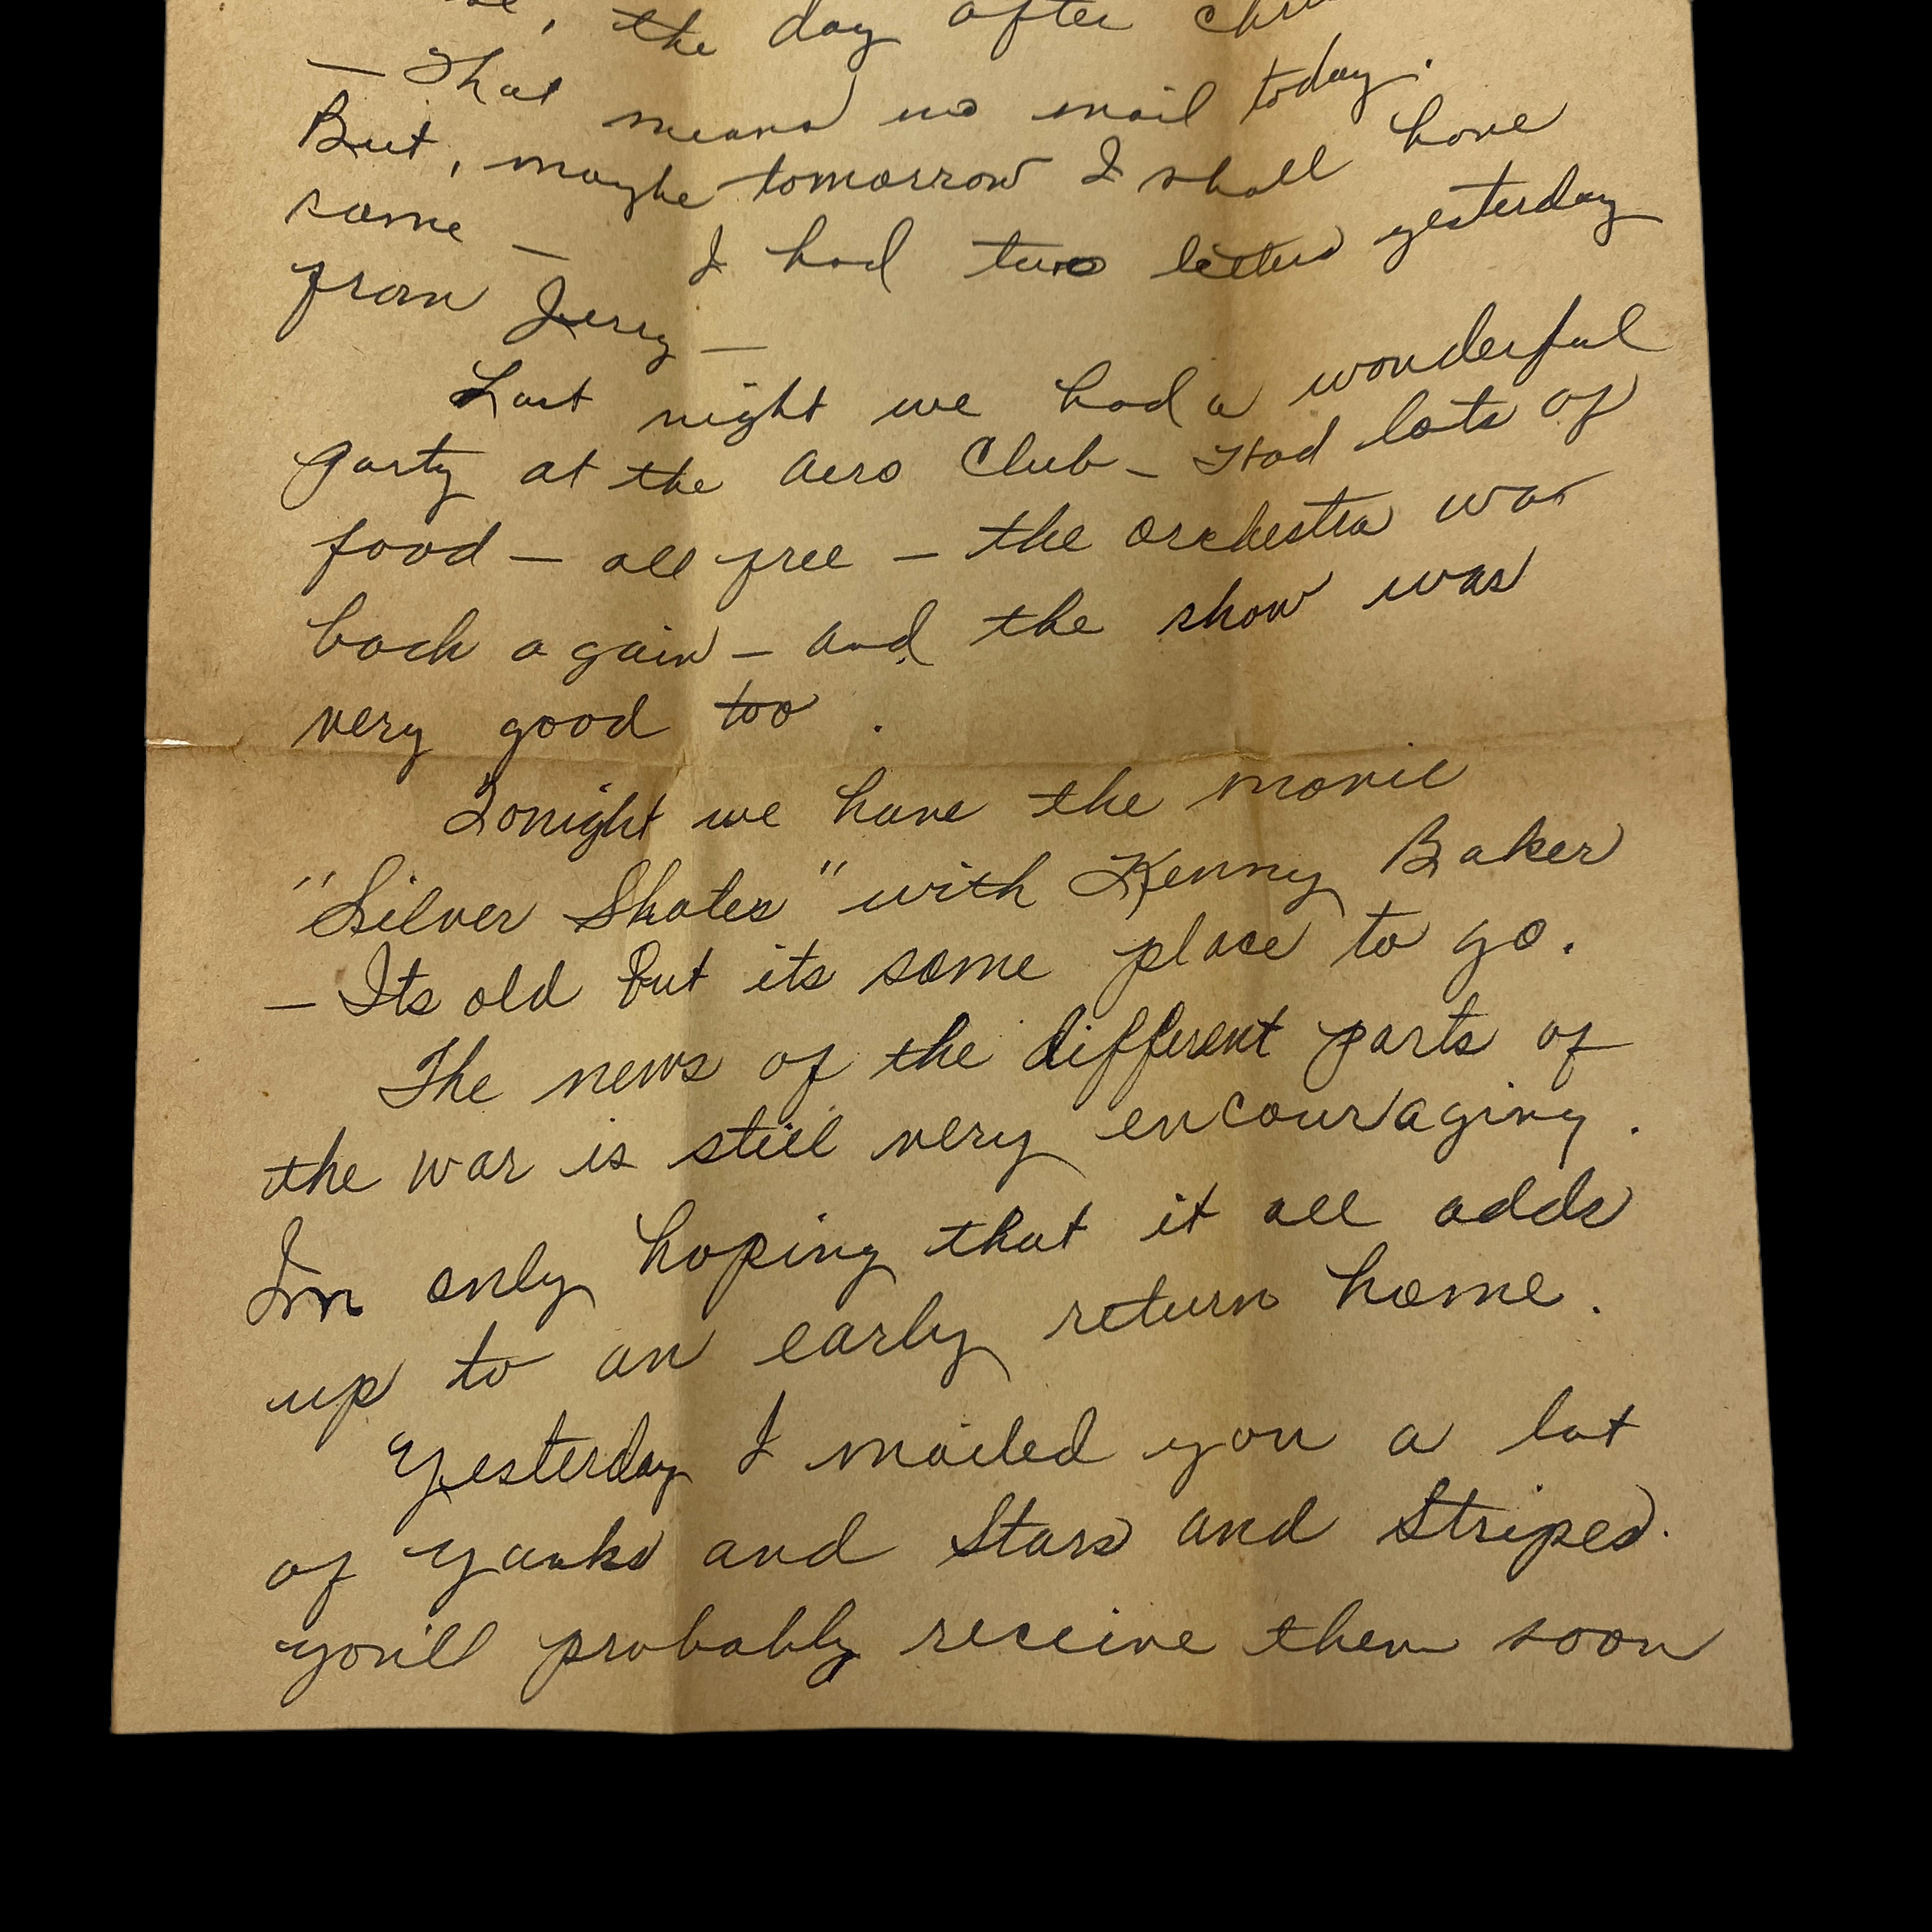 the day after
— That means no mail today.
But, maybe tomorrow I shall have
some — I had two letters yesterday
from Jerry —
Last night we had a wonderful
party at the Aero Club — Had lots of
food — all free — the orchestra was
back again — and the show was
very good too .
Tonight we have the movie
"Silver Skates" with Kenny Baker
— Its old but its some place to go.
The news of the different parts of
the war is still very encouraging .
Im only hoping that it all adds
up to an early return home .
Yesterday I mailed you a lot
of Yanks and Stars and Stripes.
you'll probably receive them soon